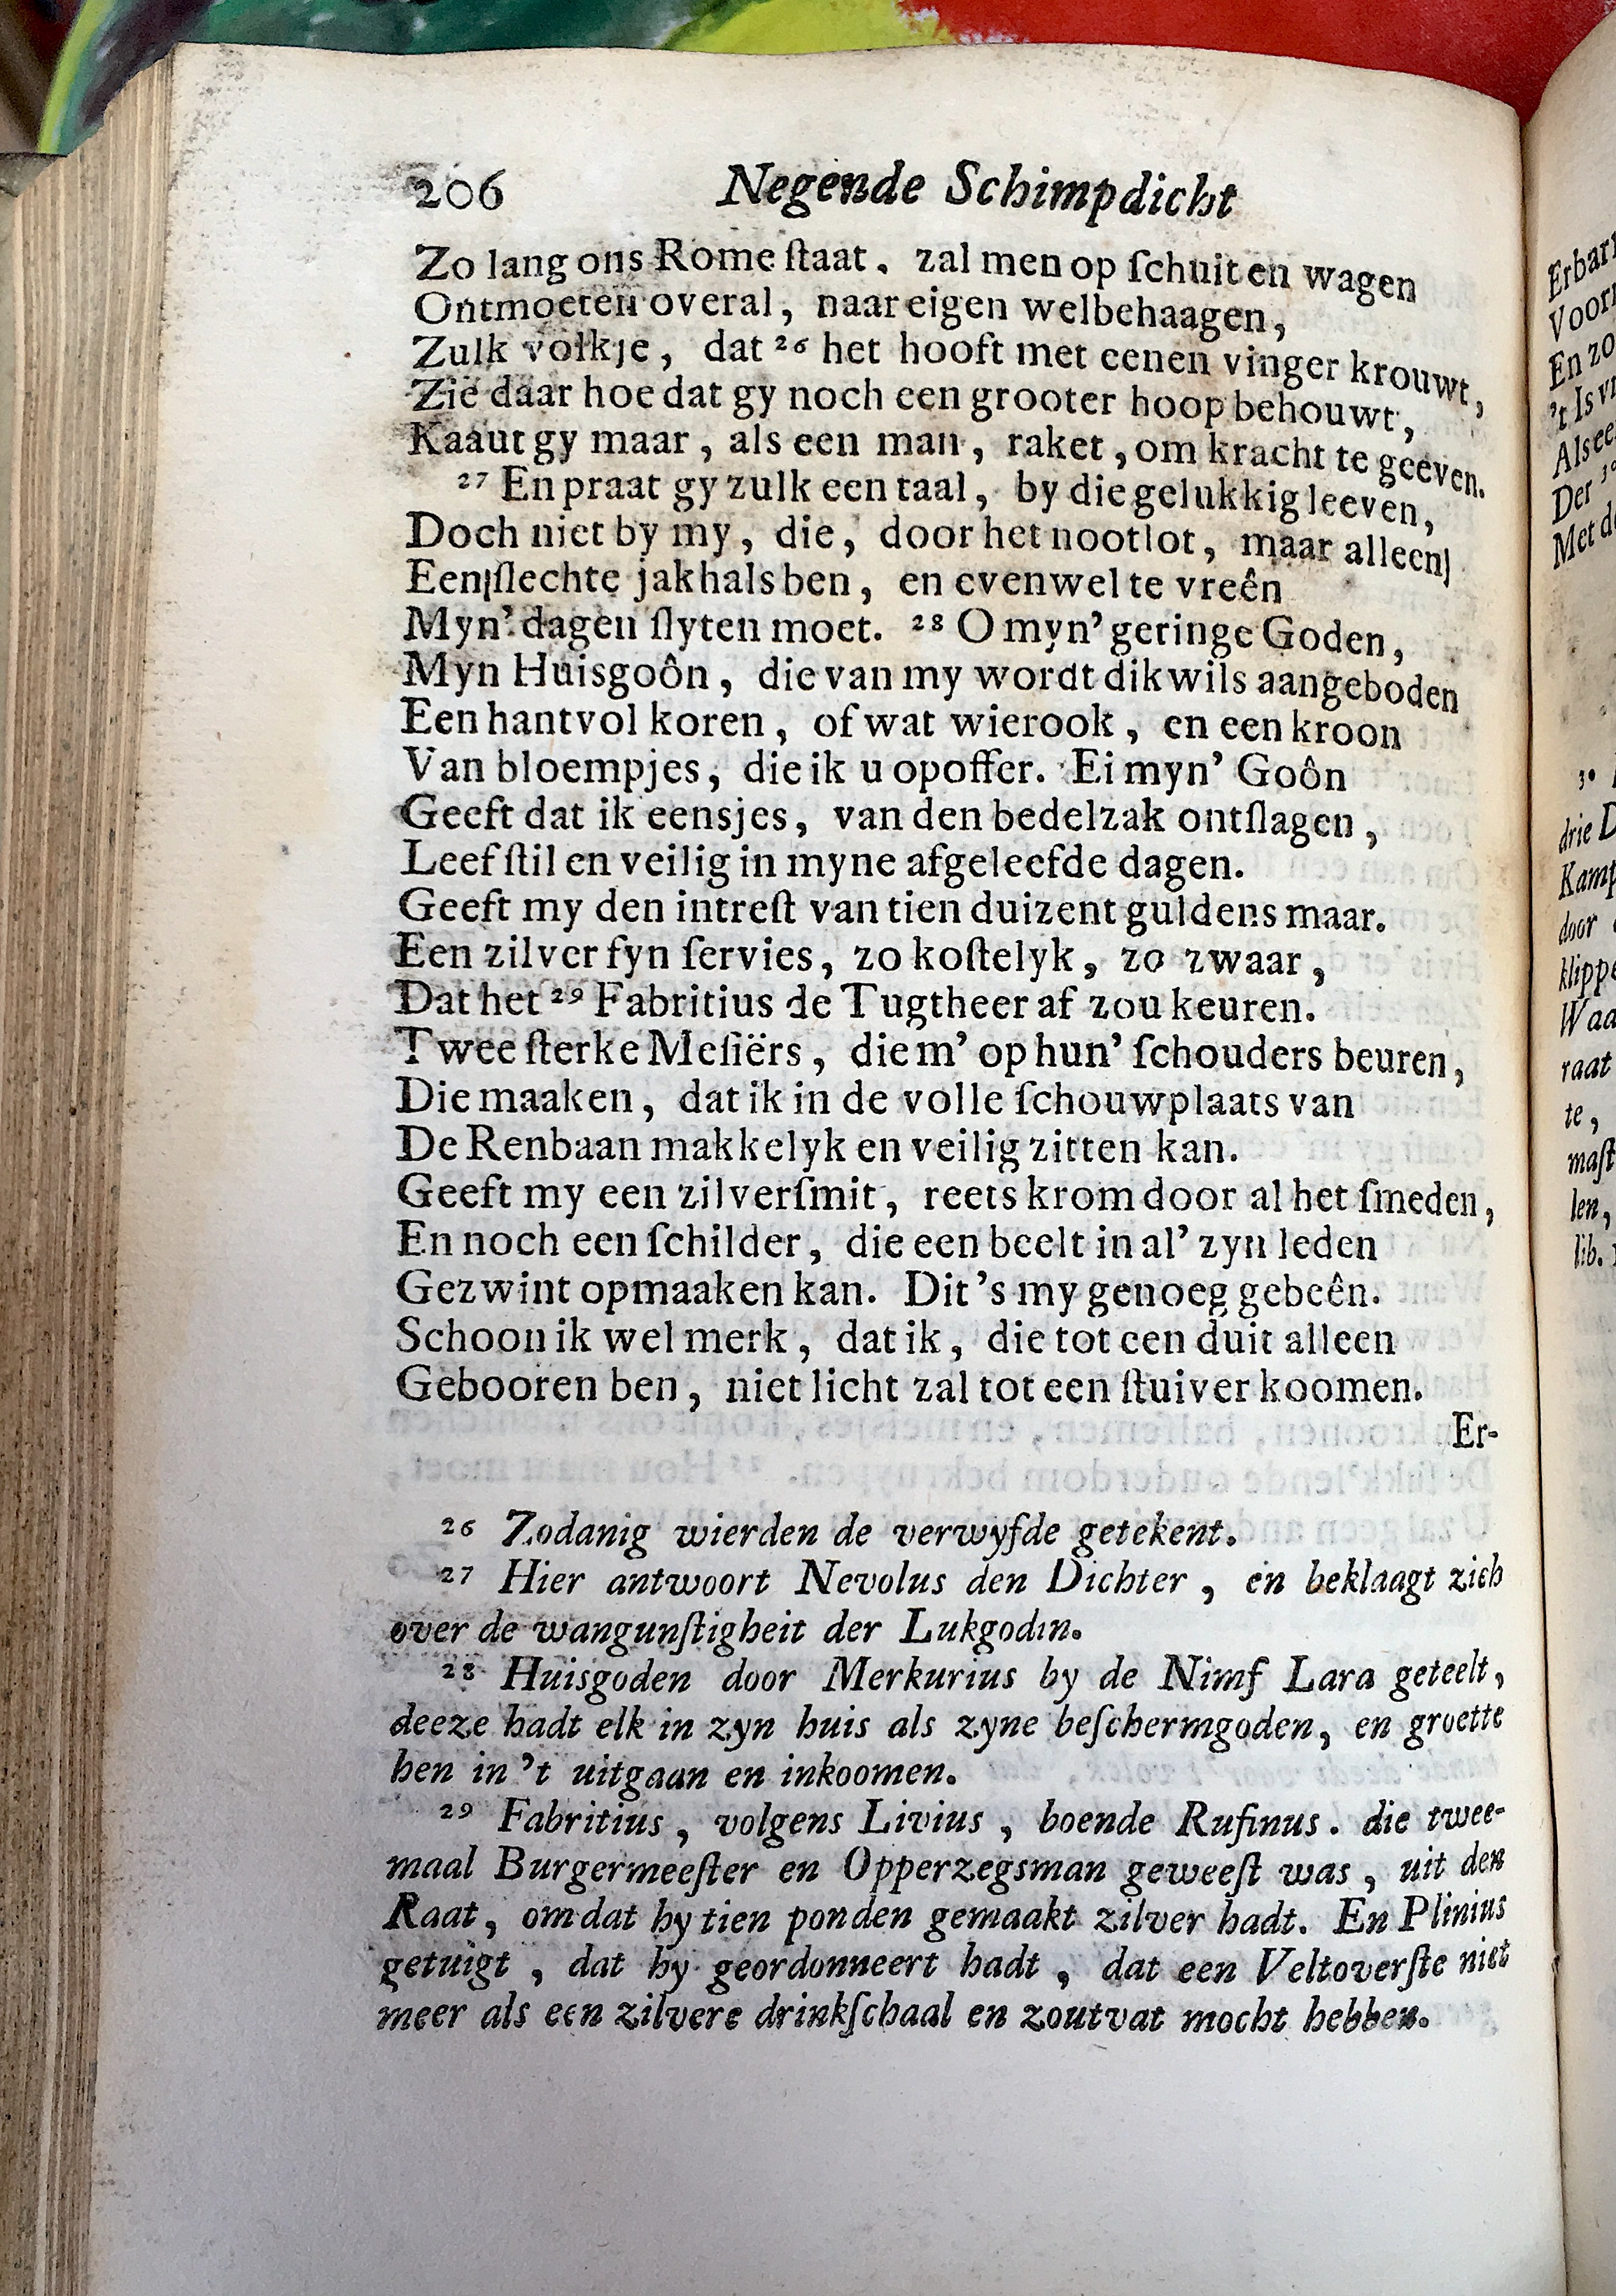 206 Negende Schimpdicht
Zo lang ons Rome ſtaat. zal men op ſchuit en wagen
Ontmoeten overal, naar eigen welbehaagen,
Zulk volkje, dat ²⁶ het hooft met eenen vinger krouwt,
Zie daar hoe dat gy noch een grooter hoop behouwt,
Kaaut gy maar, als een man, raket, om kracht te geeven.
²⁷ En praat gy zulk een taal, by die gelukkig leeven,
Doch niet by my, die, door het nootlot, maar alleen
Een ſlechte jakhals ben, en evenwel te vreên
Myn' dagen ſlyten moet. ²⁸ O myn' geringe Goden,
Myn Huisgoôn, die van my wordt dikwils aangeboden
Een hantvol koren, of wat wierook, en een kroon
Van bloempjes, die ik u opoffer. Ei myn' Goôn
Geeft dat ik eensjes, van den bedelzak ontſlagen,
Leef ſtil en veilig in myne afgeleefde dagen.
Geeft my den intreſt van tien duizent guldens maar.
Een zilver fyn ſervies, zo koſtelyk, zo zwaar,
Dat het ²⁹ Fabritius de Tugtheer af zou keuren.
Twee ſterke Meſiërs, die m' op hun' ſchouders beuren,
Die maaken, dat ik in de volle ſchouwplaats van
De Renbaan makkelyk en veilig zitten kan.
Geeft my een zilverſmit, reets krom door al het ſmeden,
En noch een ſchilder, die een beelt in al' zyn leden
Gezwint opmaaken kan. Dit 's my genoeg gebeên.
Schoon ik wel merk, dat ik, die tot een duit alleen
Gebooren ben, niet licht zal tot een ſtuiver koomen.
Er-
²⁶ Zodanig wierden de verwyfde getekent.
²⁷ Hier antwoort Nevolus den Dichter, en beklaagt zich
over de wangunſtigheit der Lukgodin.
²⁸ Huisgoden door Merkurius by de Nimf Lara geteelt,
deeze hadt elk in zyn huis als zyne beſchermgoden, en groette
hen in 't uitgaan en inkoomen.
²⁹ Fabritius, volgens Livius, boende Rufinus. die twee-
maal Burgermeeſter en Opperzegsman geweeſt was, uit den
Raat, omdat hy tien ponden gemaakt zilver hadt. En Plinius
getuigt, dat hy geordonneert hadt, dat een Veltoverſte niet
meer als een zilvere drinkſchaal en zoutvat mocht hebben.